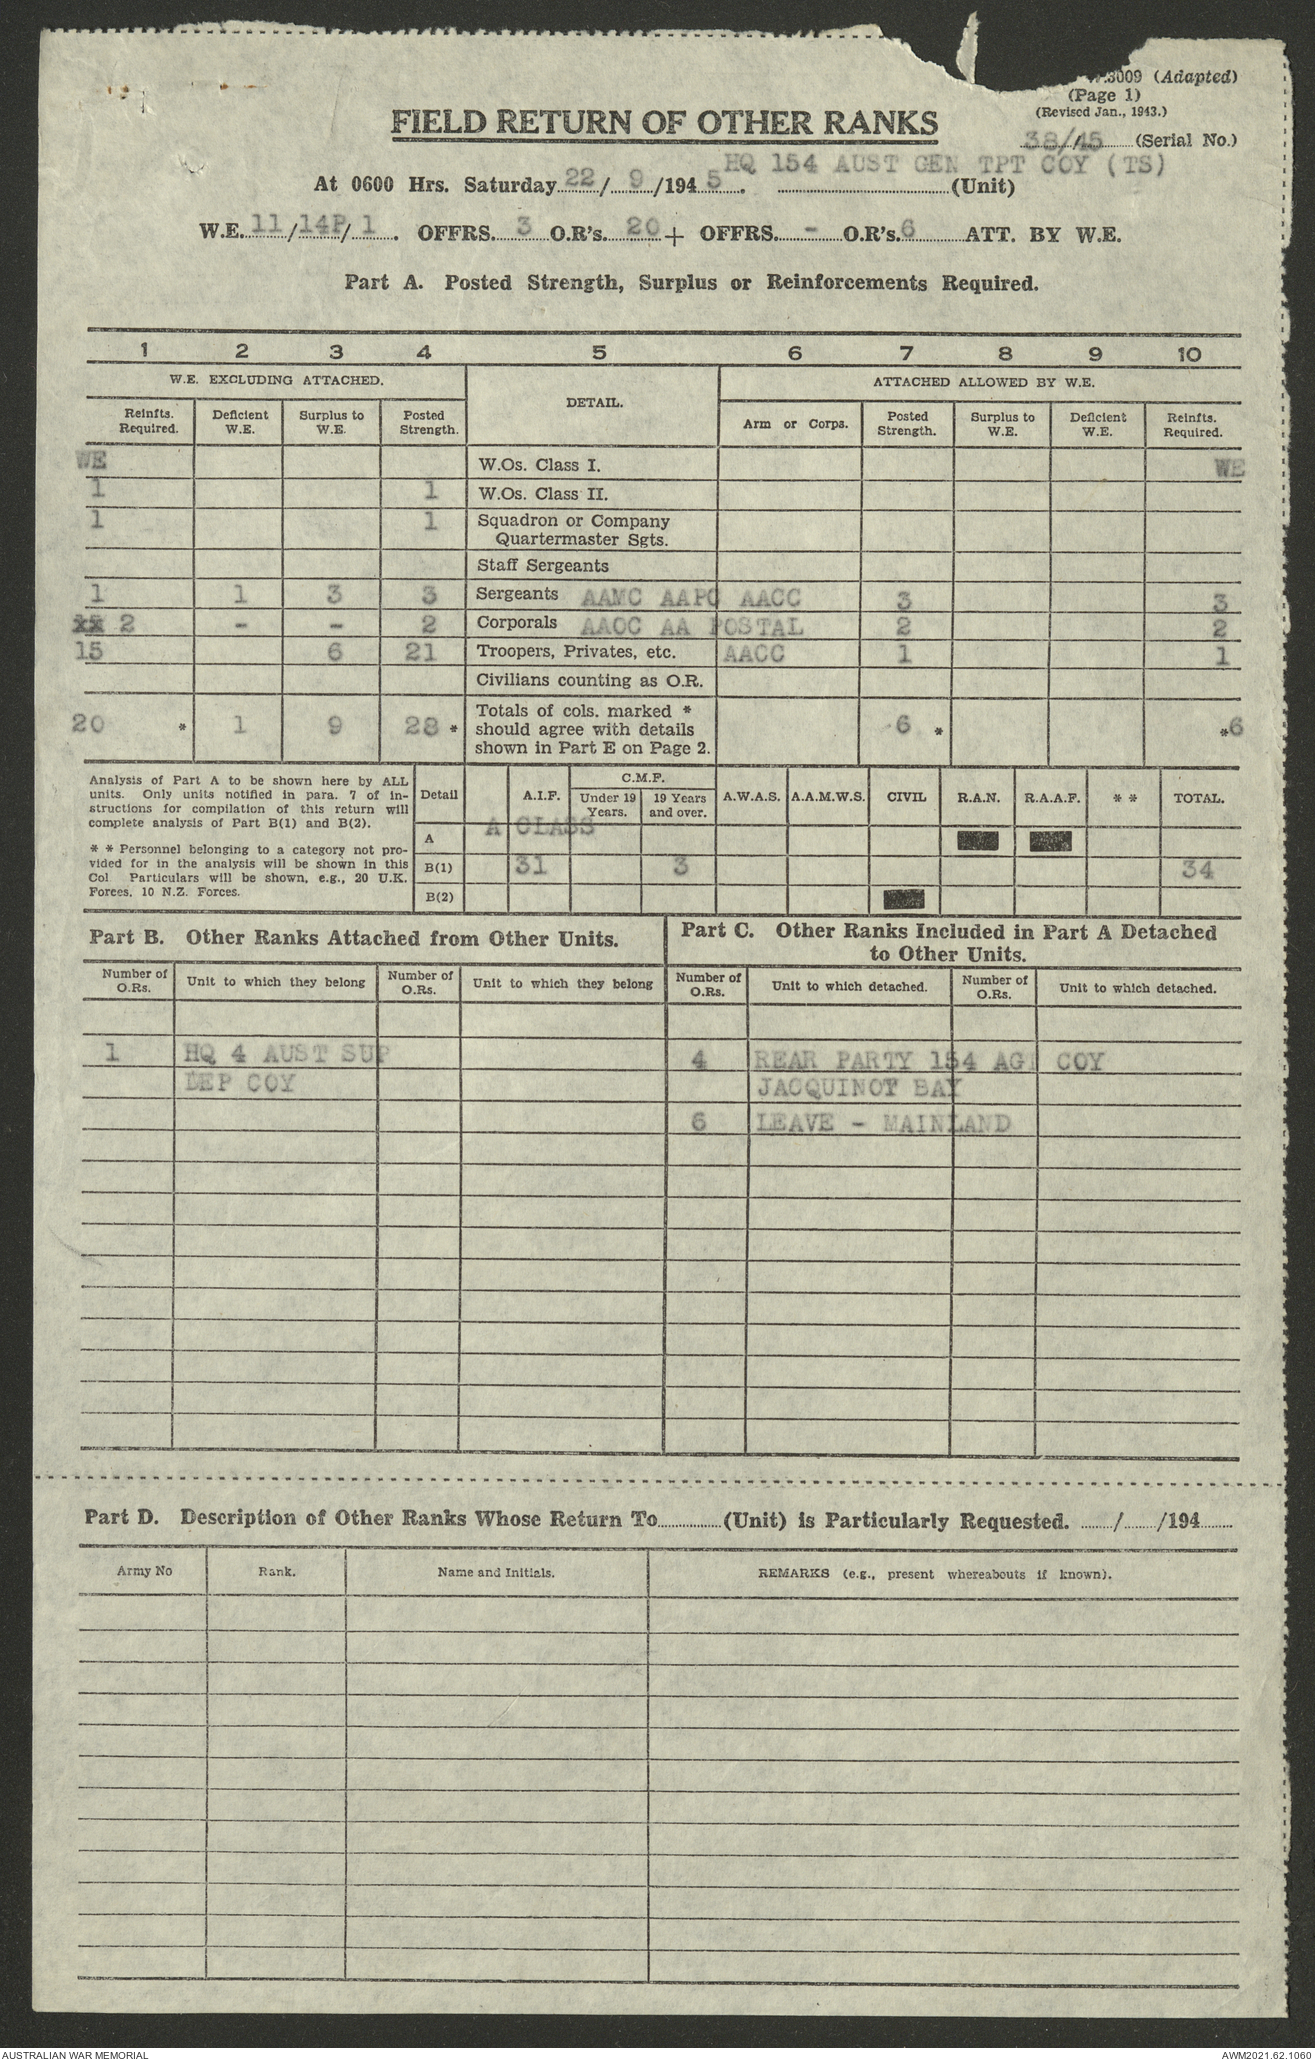 .3009 (Adapted)
(Page 1)
(Revised Jan., 1943.)
FIELD RETURN OF OTHER RANKS
38/45 (Serial No.)
HQ 154 AUST GEN TPT COY (TS)
At 0600 Hrs. Saturday 22/ 9 /194 5. (Unit)
W.E. 11/14P/ 1 . OFFRS. 3 O.R's. 20 + OFFRS. - O.R's. 6 ATT. BY W.E.
Part A. Posted Strength, Surplus or Reinforcements Required.
1 2 3 4 5 6 7 8 9 10
W.E. EXCLUDING ATTACHED. DETAIL. ATTACHED ALLOWED BY W.E.
Reinfts. Required. Deficient W.E. Surplus to W.E. Posted Strength. Arm or Corps. Posted Strength. Surplus to W.E. Deficient W.E. Reinfts. Required.
WE W.Os. Class I. WE
1 1 W.Os. Class II.
1 1 Squadron or Company
Quartermaster Sgts.
Staff Sergeants
1 1 3 3 Sergeants AAMC AAPC AACC 3 3
xx 2 - - 2 Corporals AAOC AA POSTAL 2 2
15 6 21 Troopers, Privates, etc. AACC 1 1
Civilians counting as O.R.
Totals of cols. marked *
20 * 1 9 28 * should agree with details 6 * *6
shown in Part E on Page 2.
Analysis of Part A to be shown here by ALL
units. Only units notified in para. 7 of in-
structions for compilation of this return will
complete analysis of Part B(1) and B(2).
* * Personnel belonging to a category not pro-
vided for in the analysis will be shown in this
Col Particulars will be shown, e.g., 20 U.K.
Forces, 10 N.Z. Forces.
C.M.F.
Detail A.I.F. Under 19 Years. 19 Years and over. A.W.A.S. A.A.M.W.S. CIVIL R.A.N. R.A.A.F. * * TOTAL.
A A CLASS
B(1) 31 3 34
B(2)
Part B. Other Ranks Attached from Other Units.
Part C. Other Ranks Included in Part A Detached
to Other Units.
Number of O.Rs. Unit to which they belong Number of O.Rs. Unit to which they belong Number of O.Rs. Unit to which detached. Number of O.Rs. Unit to which detached.
1 HQ 4 AUST SUP 4 REAR PARTY 154 AGT COY
DEP COY JACQUINOT BAY
6 LEAVE - MAINLAND
Part D. Description of Other Ranks Whose Return To (Unit) is Particularly Requested. / /194
Army No Rank. Name and Initials. REMARKS (e.g., present whereabouts if known).
AUSTRALIAN WAR MEMORIAL
AWM2021.62.1060